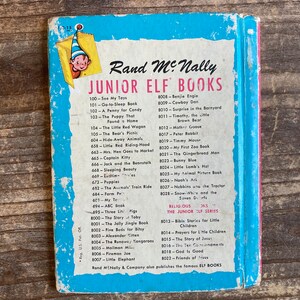 Rand McNally
JUNIOR ELF BOOKS
100 – See My Toys
101 – Go-to-Sleep Book
102 – A Penny for Candy
103 – The Puppy That
Found a Home
104 – The Little Red Wagon
105 – The Bear's Picnic
656 – Hide-Away Animals
658 – Little Red Riding-Hood
657 – Mrs. Hen Goes to Market
665 – Captain Kitty
664 – Jack and the Beanstalk
668 – Sleeping Beauty
669 –
673 – Puppies
692 – The Animals' Train Ride
694 – Farm
695 – My
696 – ABC Book
698 – Three
8000 – The Story of Toby
8001 – The Jolly Jingle Book
8002 – Five Busy
8003 – Alexander
8004 – The Runaway Tangerous
8005 – Muggins Mouse
8006 – Fireman Joe
8007 – Little Elephant
8008 – Bernie Engine
8009 – Cowboy Dan
8010 – Surprise in the Barnyard
8011 – Timothy, the Little
Brown Bear
8012 – Mother Goose
8017 – Peter Rabbit
8019 – Timmy Mouse
8020 – My First Zoo Book
8021 – The Gingerbread Man
8023 – Bunny Blue
8024 – Little Lamb's Hat
8025 – My Animal Picture Book
8026 – Noah's Ark
8027 – Hobbie and the Tractor
8028 – Snow-White and the
Seven Dwarfs
RELIGIOUS
THE JUNIOR ELF SERIES
8013 – Bible Stories for Little
Children
8014 – Prayers for Little Children
8015 – The Story of Jesus
8016 – The Ten Commandments
8018 – God Is Good
8022 – Friends of Jesus
Rand McNally & Company also publishes the famous ELF BOOKS